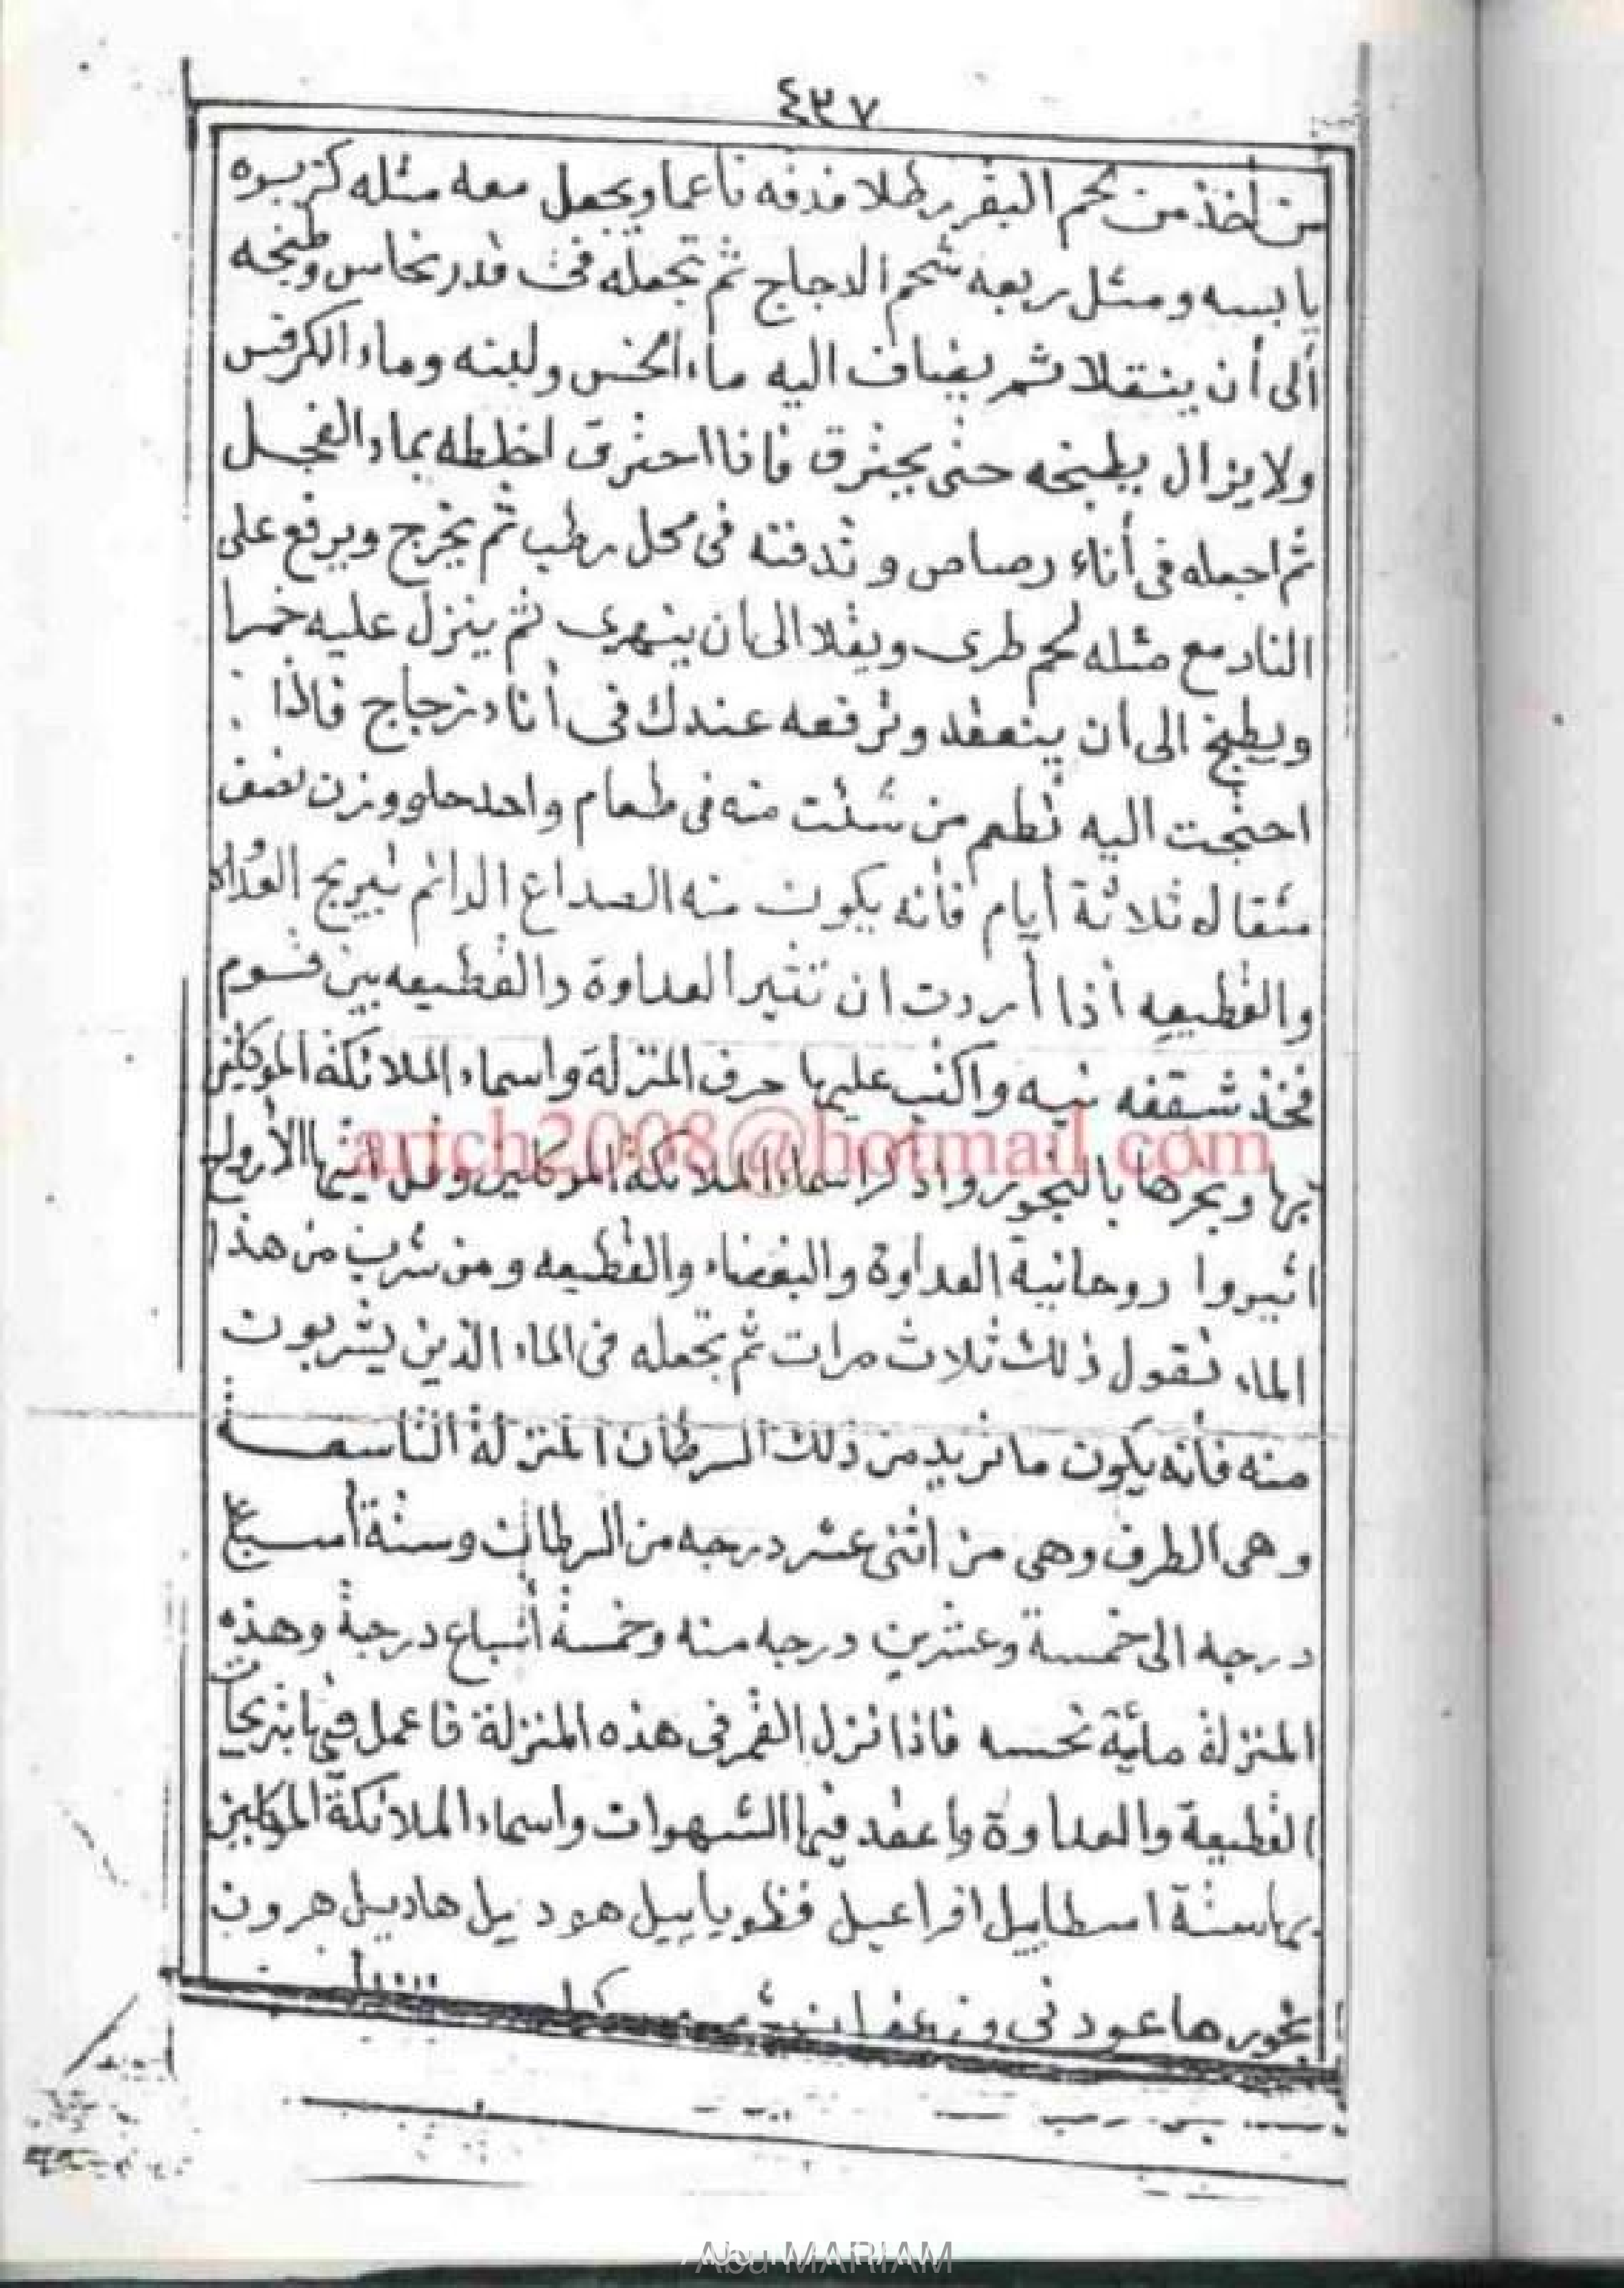 ٤٣٧
من أخذ من لحم البقر رطلا فدقه ناعما ويجعل معه مثله كزبره
يابسه ومثل ربعه شحم الدجاج ثم تجعله في قدر نحاس وطبخه
ألى أن ينقلا ثم يضاف اليه ماء الخس ولبنه وماء الكرفس
ولا يزال يطبخه حتى يحترق فاذا احترق اخلطه بماء الفجل
ثم اجعله فى أناء رصاص وتدفنه فى محل رطب ثم يخرج ويرفع على
النار مع مثله لحم طرى ويقلا الى ان ينهرى ثم ينزل عليه خمرا
ويطبخ الى أن ينعقد وترفعه عندك فى أناء زجاج فاذا
احتجت اليه تطعم من شئت منه فى طعام واحد حلو وزن نصف
مثقال ثلاثة أيام فأنه يكون منه الصداع الدائم تبريج العداه
والقطيعه أذا أردت ان تثير العداوة والقطيعه بين قوم
فخذ شقفه نيه واكتب عليها حرف المنزلة واسماء الملائكة الموكلين
بها وبخرها بالبخور واذكر اسماء الملائكة الموكلين وقل ايتها الأرواح
اثيروا روحانية العداوة والبغضاء والقطيعه ومن شرب من هذا
الماء تقول ذلك ثلاث مرات ثم تجعله فى الماء الذين يشربون
منه فأنه يكون ما تريد من ذلك السرطان المنزلة التاسعة
وهى الطرف وهى من اثنى عشر درجه من السرطان وستة أسباع
درجه الى خمسة وعشرين درجه منه وخمسة أسباع درجة وهذه
المنزلة مائية نحسه فاذا نزل القمر فى هذه المنزلة فاعمل فيها نبريجات
القطيعة والعداوة وأعقد فيها الشهوات واسماء الملائكة الموكلين
بها ستة اسطاييل افراعيل فظوياييل هوديل هاديل هرون
بخورها عود نى وزعفران
artch2008@hotmail.com
Abu MARIAM